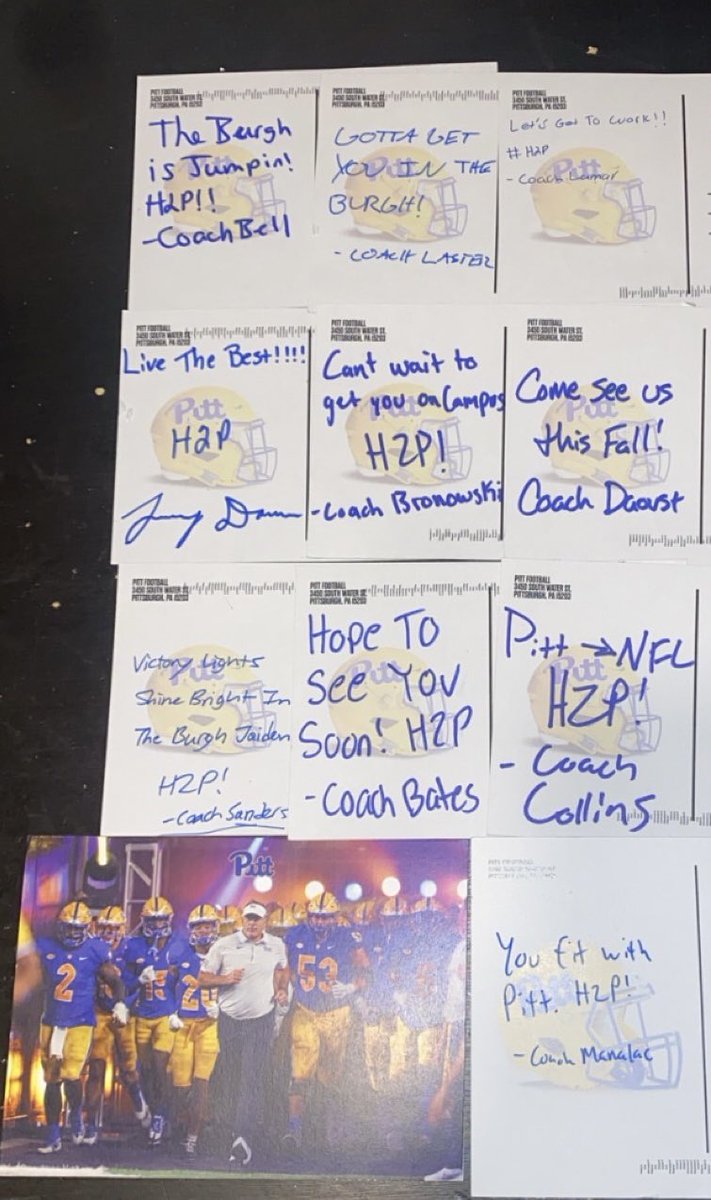 PITT FOOTBALL
3450 SOUTH WATER ST.
PITTSBURGH, PA 15203
The Burgh
is Jumpin!
H2P!!
-Coach Bell
PITT FOOTBALL
3450 SOUTH WATER ST.
PITTSBURGH, PA 15203
GOTTA GET
YOU IN THE
BURGH!
- COACH LASTER
PITT FOOTBALL
3450 SOUTH WATER ST.
PITTSBURGH, PA 15203
Let's Get To Work!!
#H2P
Pitt
- Coach Lamar
PITT FOOTBALL
3450 SOUTH WATER ST.
PITTSBURGH, PA 15203
Live The Best!!!!
Pitt
H2P
PITT FOOTBALL
3450 SOUTH WATER ST.
PITTSBURGH, PA 15203
Cant wait to
get you on Campus
H2P!
-Coach Bronowski
PITT FOOTBALL
3450 SOUTH WATER ST.
PITTSBURGH, PA 15203
Come see us
this Fall!
Coach Daoust
PITT FOOTBALL
3450 SOUTH WATER ST.
PITTSBURGH, PA 15203
Victory Lights
Shine Bright In
The Burgh Jaiden
H2P!
-Coach Sanders
PITT FOOTBALL
3450 SOUTH WATER ST.
PITTSBURGH, PA 15203
Hope To
See You
Soon! H2P
-Coach Bates
PITT FOOTBALL
3450 SOUTH WATER ST.
PITTSBURGH, PA 15203
Pitt → NFL
H2P!
- Coach
Collins
Pitt
2
15
53
You fit with
Pitt. H2P!
- Coach Manalac